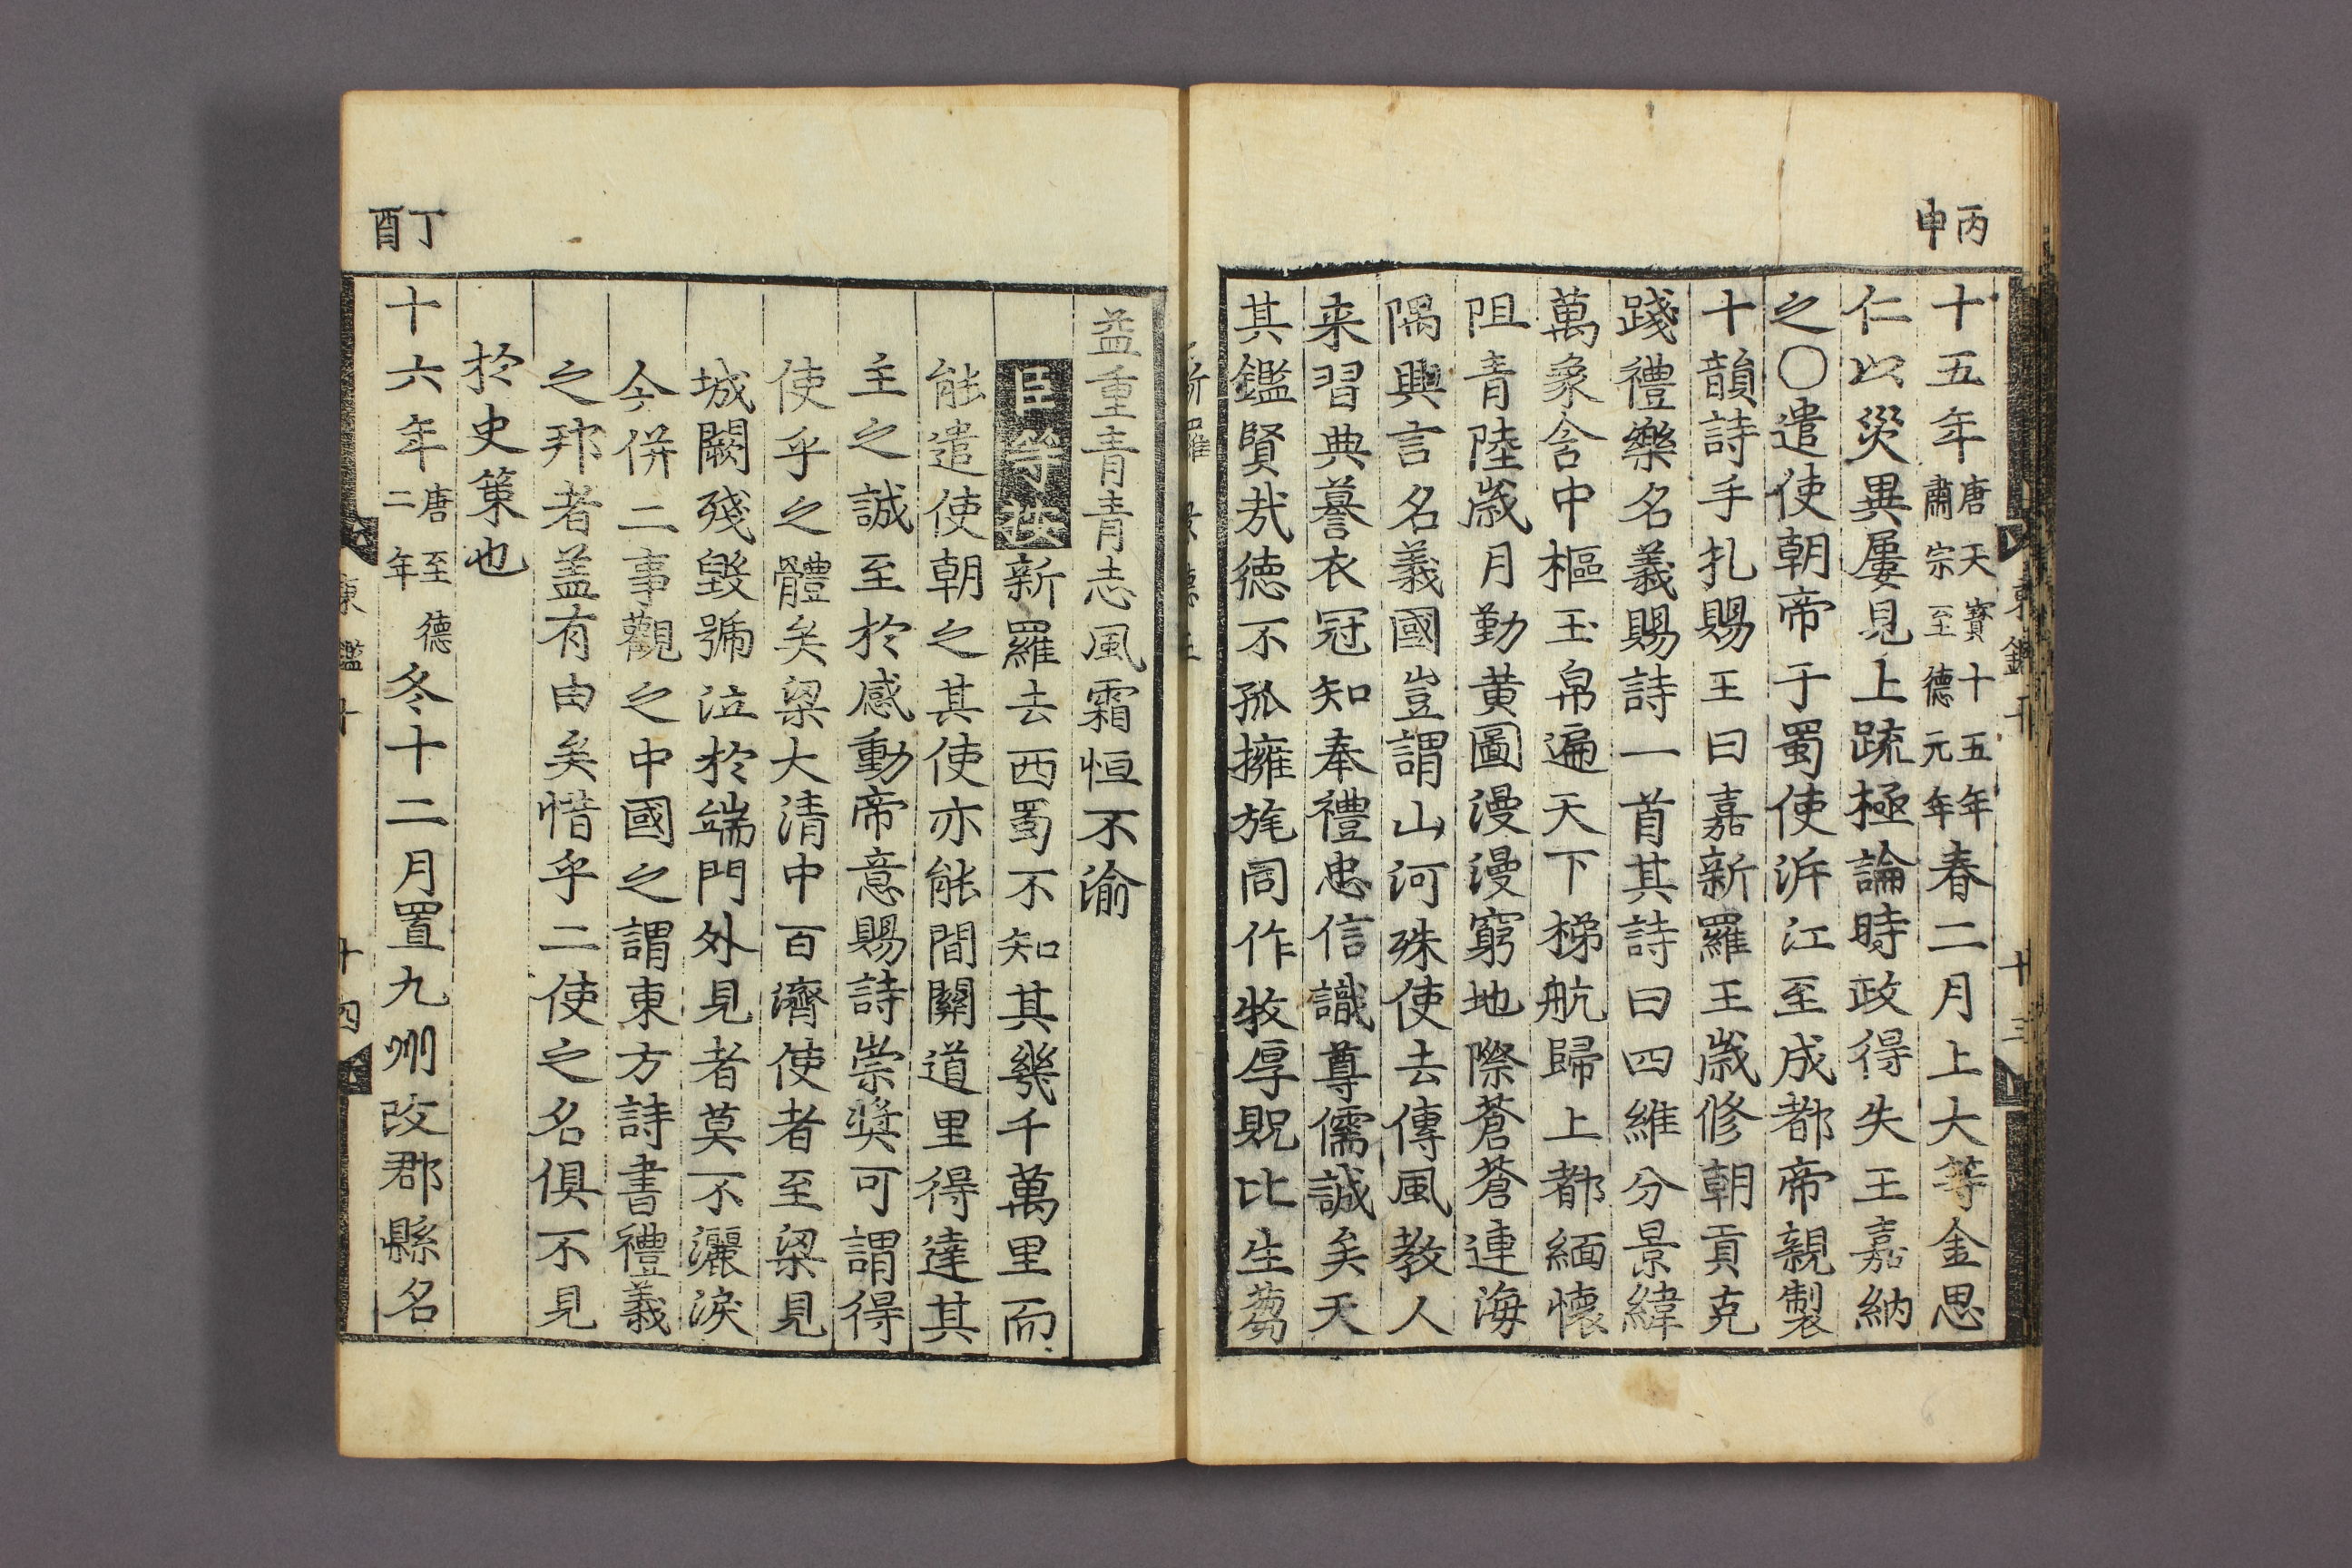 丙申
十五年唐天寶十五年肅宗至德元年春二月上大等金思
仁以災異屢見上疏極論時政得失王嘉納
之〇遣使朝帝于蜀使泝江至成都帝親製
十韻詩手扎賜王曰嘉新羅王歲修朝貢克
踐禮樂名義賜詩一首其詩曰四維分景緯
萬象含中樞玉帛遍天下梯航歸上都緬懷
阻青陸歲月勤黃圖漫漫窮地際蒼蒼連海
隅興言名義國豈謂山河殊使去傳風敎人
来習典謩衣冠知奉禮忠信識尊儒誠矣天
其鑑賢㢤德不孤擁旄同作牧厚貺比生蒭
益重青青志風霜恒不渝
臣等按新羅去西蜀不知其幾千萬里而
能遣使朝之其使亦能間關道里得達其
主之誠至於感動帝意賜詩崇奬可謂得
使乎之體矣梁大清中百濟使者至梁見
城闕殘毀號泣於端門外見者莫不灑淚
今倂二事觀之中國之謂東方詩書禮義
之邦者盖有由矣惜乎二使之名俱不見
於史策也
丁酉
十六年唐至德二年冬十二月置九州改郡縣名
東鑑十
十四